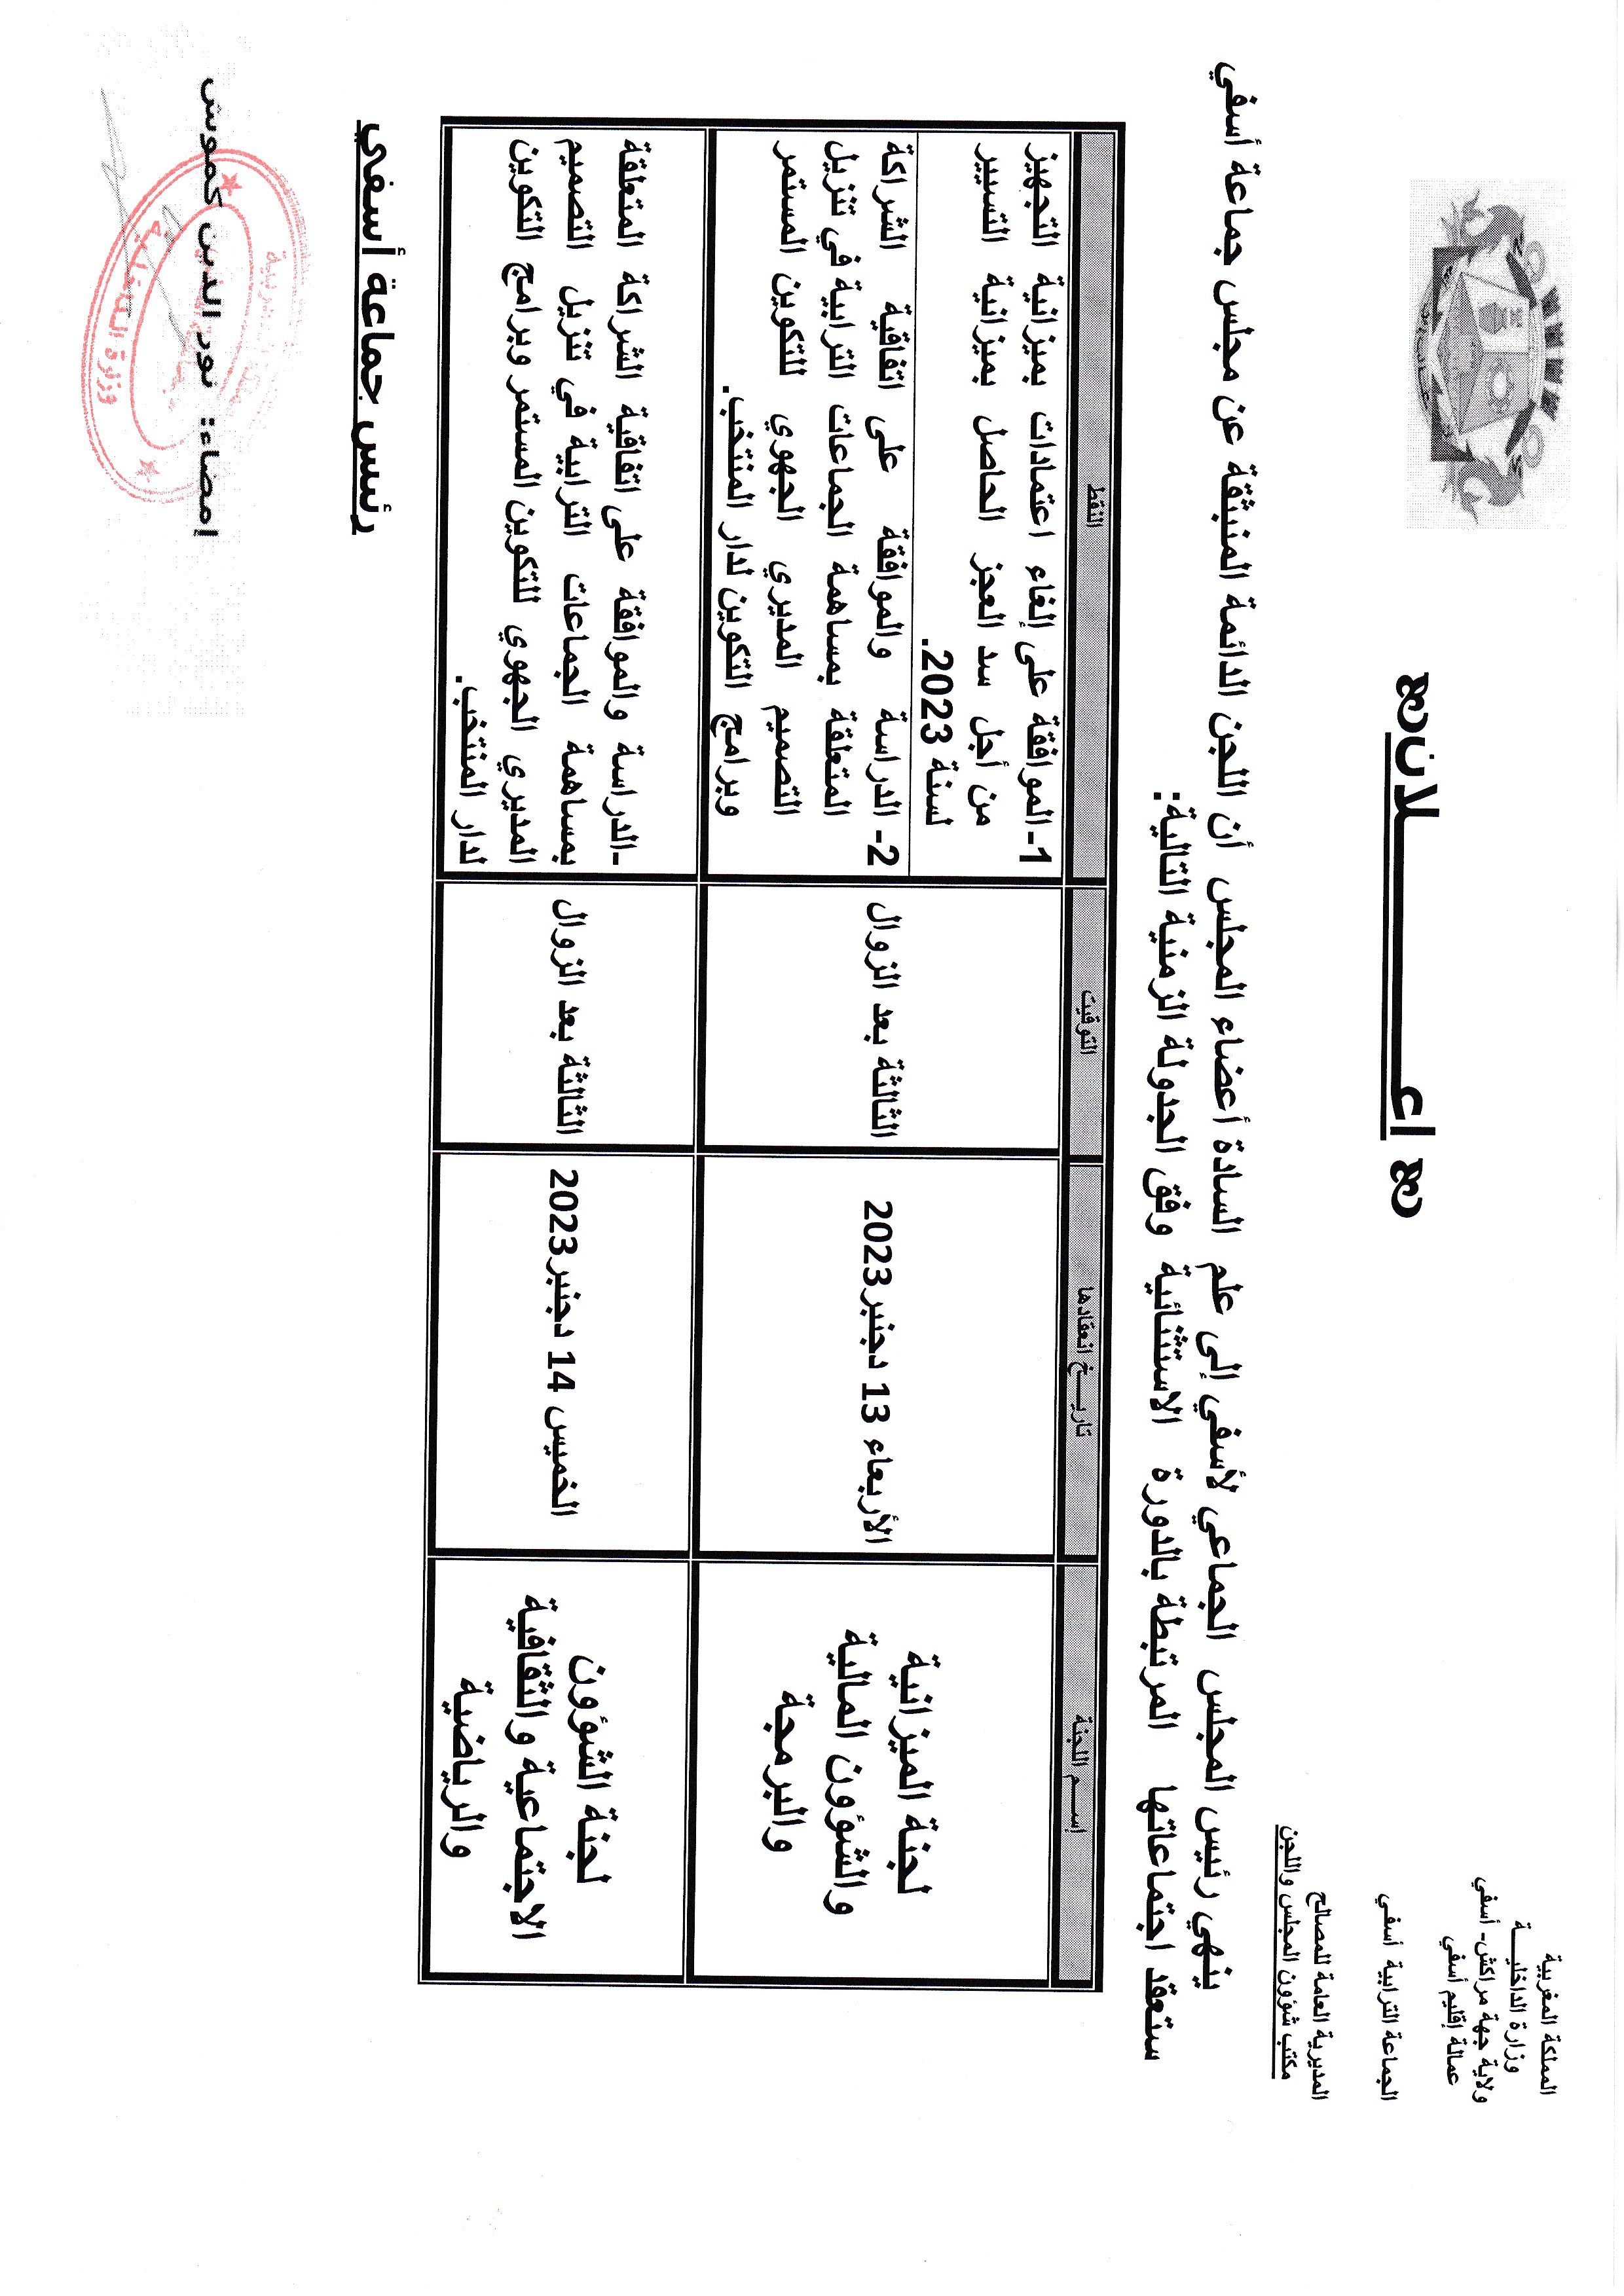 المملكة المغربية
وزارة الداخليـــــة
ولاية جهة مراكش- أسفي
عمالة إقليم أسفي
الجماعة الترابية أسفي
المديرية العامة للمصالح
مكتب شؤون المجلس واللجن
اعــــــــــــلان
ينهي رئيس المجلس الجماعي لأسفي إلى علم السادة أعضاء المجلس أن اللجن الدائمة المنبثقة عن مجلس جماعة أسفي
ستعقد اجتماعاتها المرتبطة بالدورة الاستثنائية وفق الجدولة الزمنية التالية:
إســـم اللجنة
تاريـــخ انعقادها
التوقيت
النقط
لجنة الميزانية
والشؤون المالية
والبرمجة
الأربعاء 13 دجنبر2023
الثالثة بعد الزوال
1-الموافقة على إلغاء اعتمادات بميزانية التجهيز
من أجل سد العجز الحاصل بميزانية التسيير
لسنة 2023.
2- الدراسة والموافقة على اتفاقية الشراكة
المتعلقة بمساهمة الجماعات الترابية في تنزيل
التصميم المديري الجهوي للتكوين المستمر
وبرامج التكوين لدار المنتخب.
لجنة الشؤون
الاجتماعية والثقافية
والرياضية
الخميس 14 دجنبر2023
الثالثة بعد الزوال
-الدراسة والموافقة على اتفاقية الشراكة المتعلقة
بمساهمة الجماعات الترابية في تنزيل التصميم
المديري الجهوي للتكوين المستمر وبرامج التكوين
لدار المنتخب.
رئيس جماعة أسفي
امضاء: نور الدين كموش
وزارة الداخلية